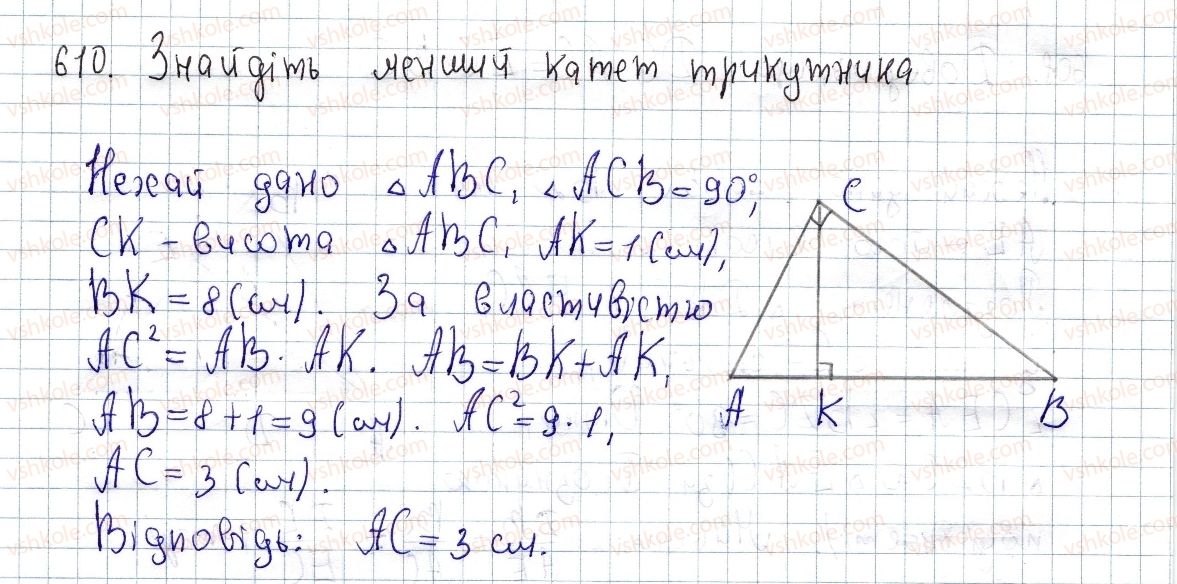 610. Знайдіть менший катет трикутника
Нехай дано △ABC, ∠ACB = 90°;
CK – висота △ABC, AK = 1 (см),
BK = 8 (см). За властивістю
AC² = AB · AK. AB = BK + AK,
AB = 8 + 1 = 9 (см). AC² = 9 · 1,
AC = 3 (см).
Відповідь: AC = 3 см.
C
A K B
vshkole.com